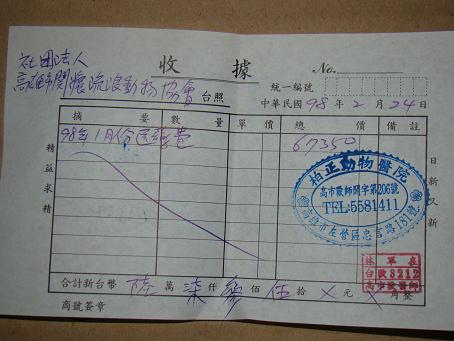 社團法人
高雄市關懷流浪動物協會 台照
收據
No.
統一編號
中華民國 98 年 2 月 24 日
摘要 數量 單價 總價 備註
98年1月份醫療費 67350
精益求精
日新又新
柏正動物醫院
高市獸師開字第206號
TEL:5581411
高雄市左營區忠言路181號
林軍在
台獸3212
高市獸醫師
合計新台幣 陸 萬 柒 仟 參 佰 伍 拾 X 元 X 角整
商號簽章